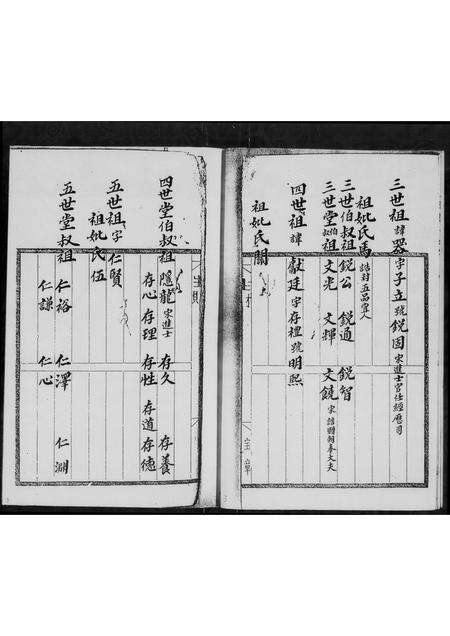 三世祖諱器字子立號銳固宋進士官任經歷司
祖妣氏馬誥封五品宜人
三世伯叔祖銳公 銳通 銳智
三世堂伯叔祖文光 文輝 文饒宋誥贈朝奉大夫
四世祖諱獻廷字存禮號明熙
祖妣氏關
四世堂伯叔祖隱龍宋進士 存久 存養
存心 存理 存性 存道 存德
五世祖字仁賢
祖妣氏伍
五世堂叔祖 仁裕 仁澤 仁淵
仁謙 仁心